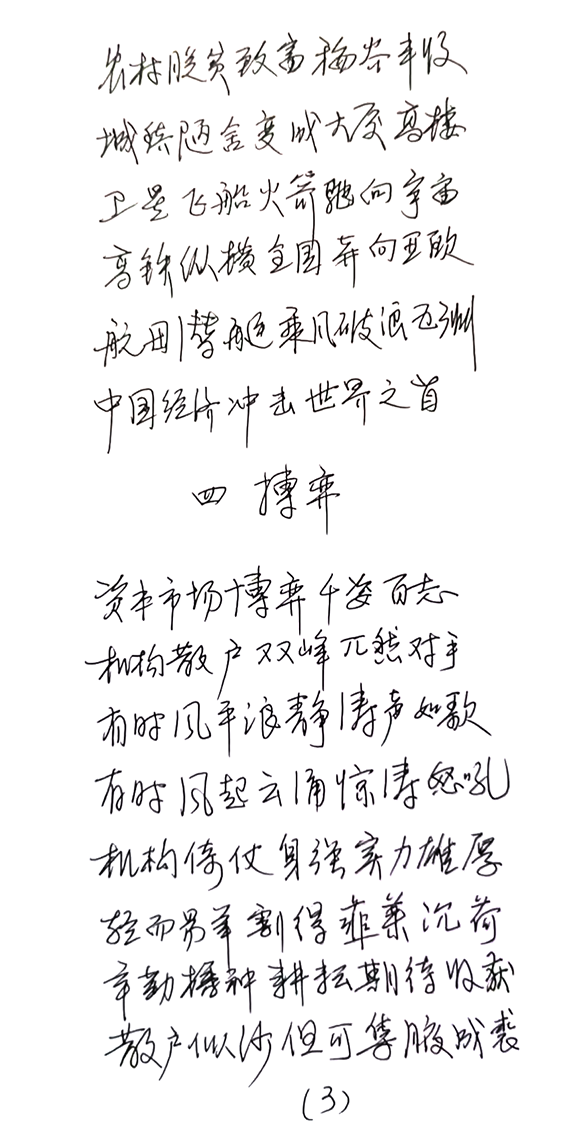 农村脱贫致富梅谷丰收
城镇陋舍变成大厦高楼
卫星飞船火箭驰向宇宙
高铁纵横全国奔向亚欧
航母潜艇乘风破浪五洲
中国经济冲击世界之首
四 搏弈
资本市场博弈千姿百态
机构散户双峰兀然对手
有时风平浪静涛声如歌
有时风起云涌惊涛怒吼
机构倚仗身强实力雄厚
轻而易举割得韭菜沉荷
辛勤播种耕耘期待收获
散户似沙但可集腋成裘
(3)